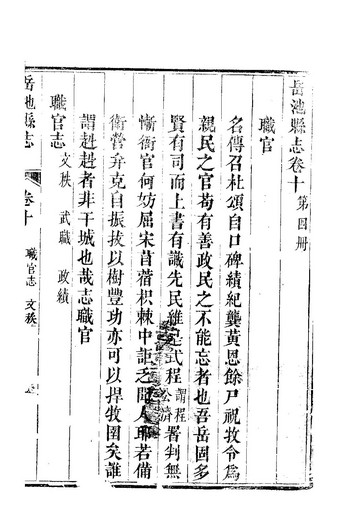 岳池縣志卷十 第四冊
職官
名傳召杜頌自口碑績紀龔黃恩餘戶祝牧令爲
親民之官苟有善政民之不能忘者也吾岳固多
賢有司而上書有識先民維 式程 謂程公濟 署判無
慚銜官何妨屈宋菖蓿枳棘中詎乏聞人耶若備
銜營弁克自振拔以樹豐功亦可以捍牧圉矣誰
謂赳赳者非干城也哉志職官
職官志 文秩 武職 政績
岳池縣志 卷十 職官志 文秩